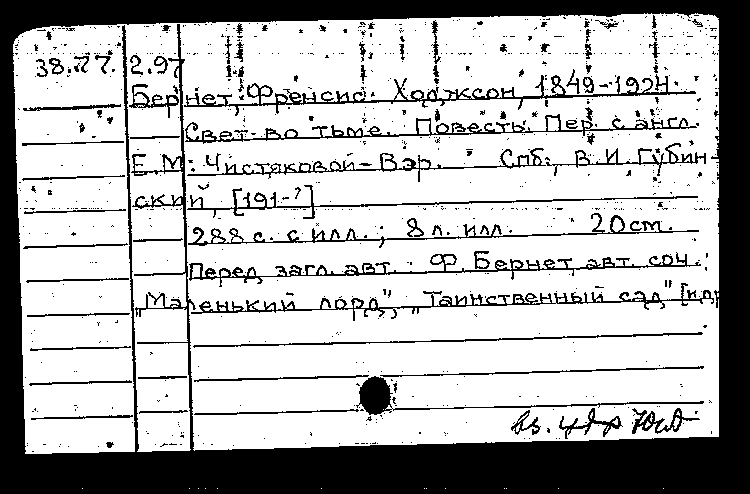 38.77. 2.97
Бернет, Френсис Ходжсон, 1849-1924.
Свет во тьме. Повесть. Пер. с англ.
Е.М. Чистяковой-Вэр. Спб., В.И. Губин-
ский, [191-?]
288 с. с илл.; 8 л. илл. 20 см.
Перед загл. авт.: Ф. Бернет, авт. соч.:
"Маленький лорд", "Таинственный сад" [и др
вз.